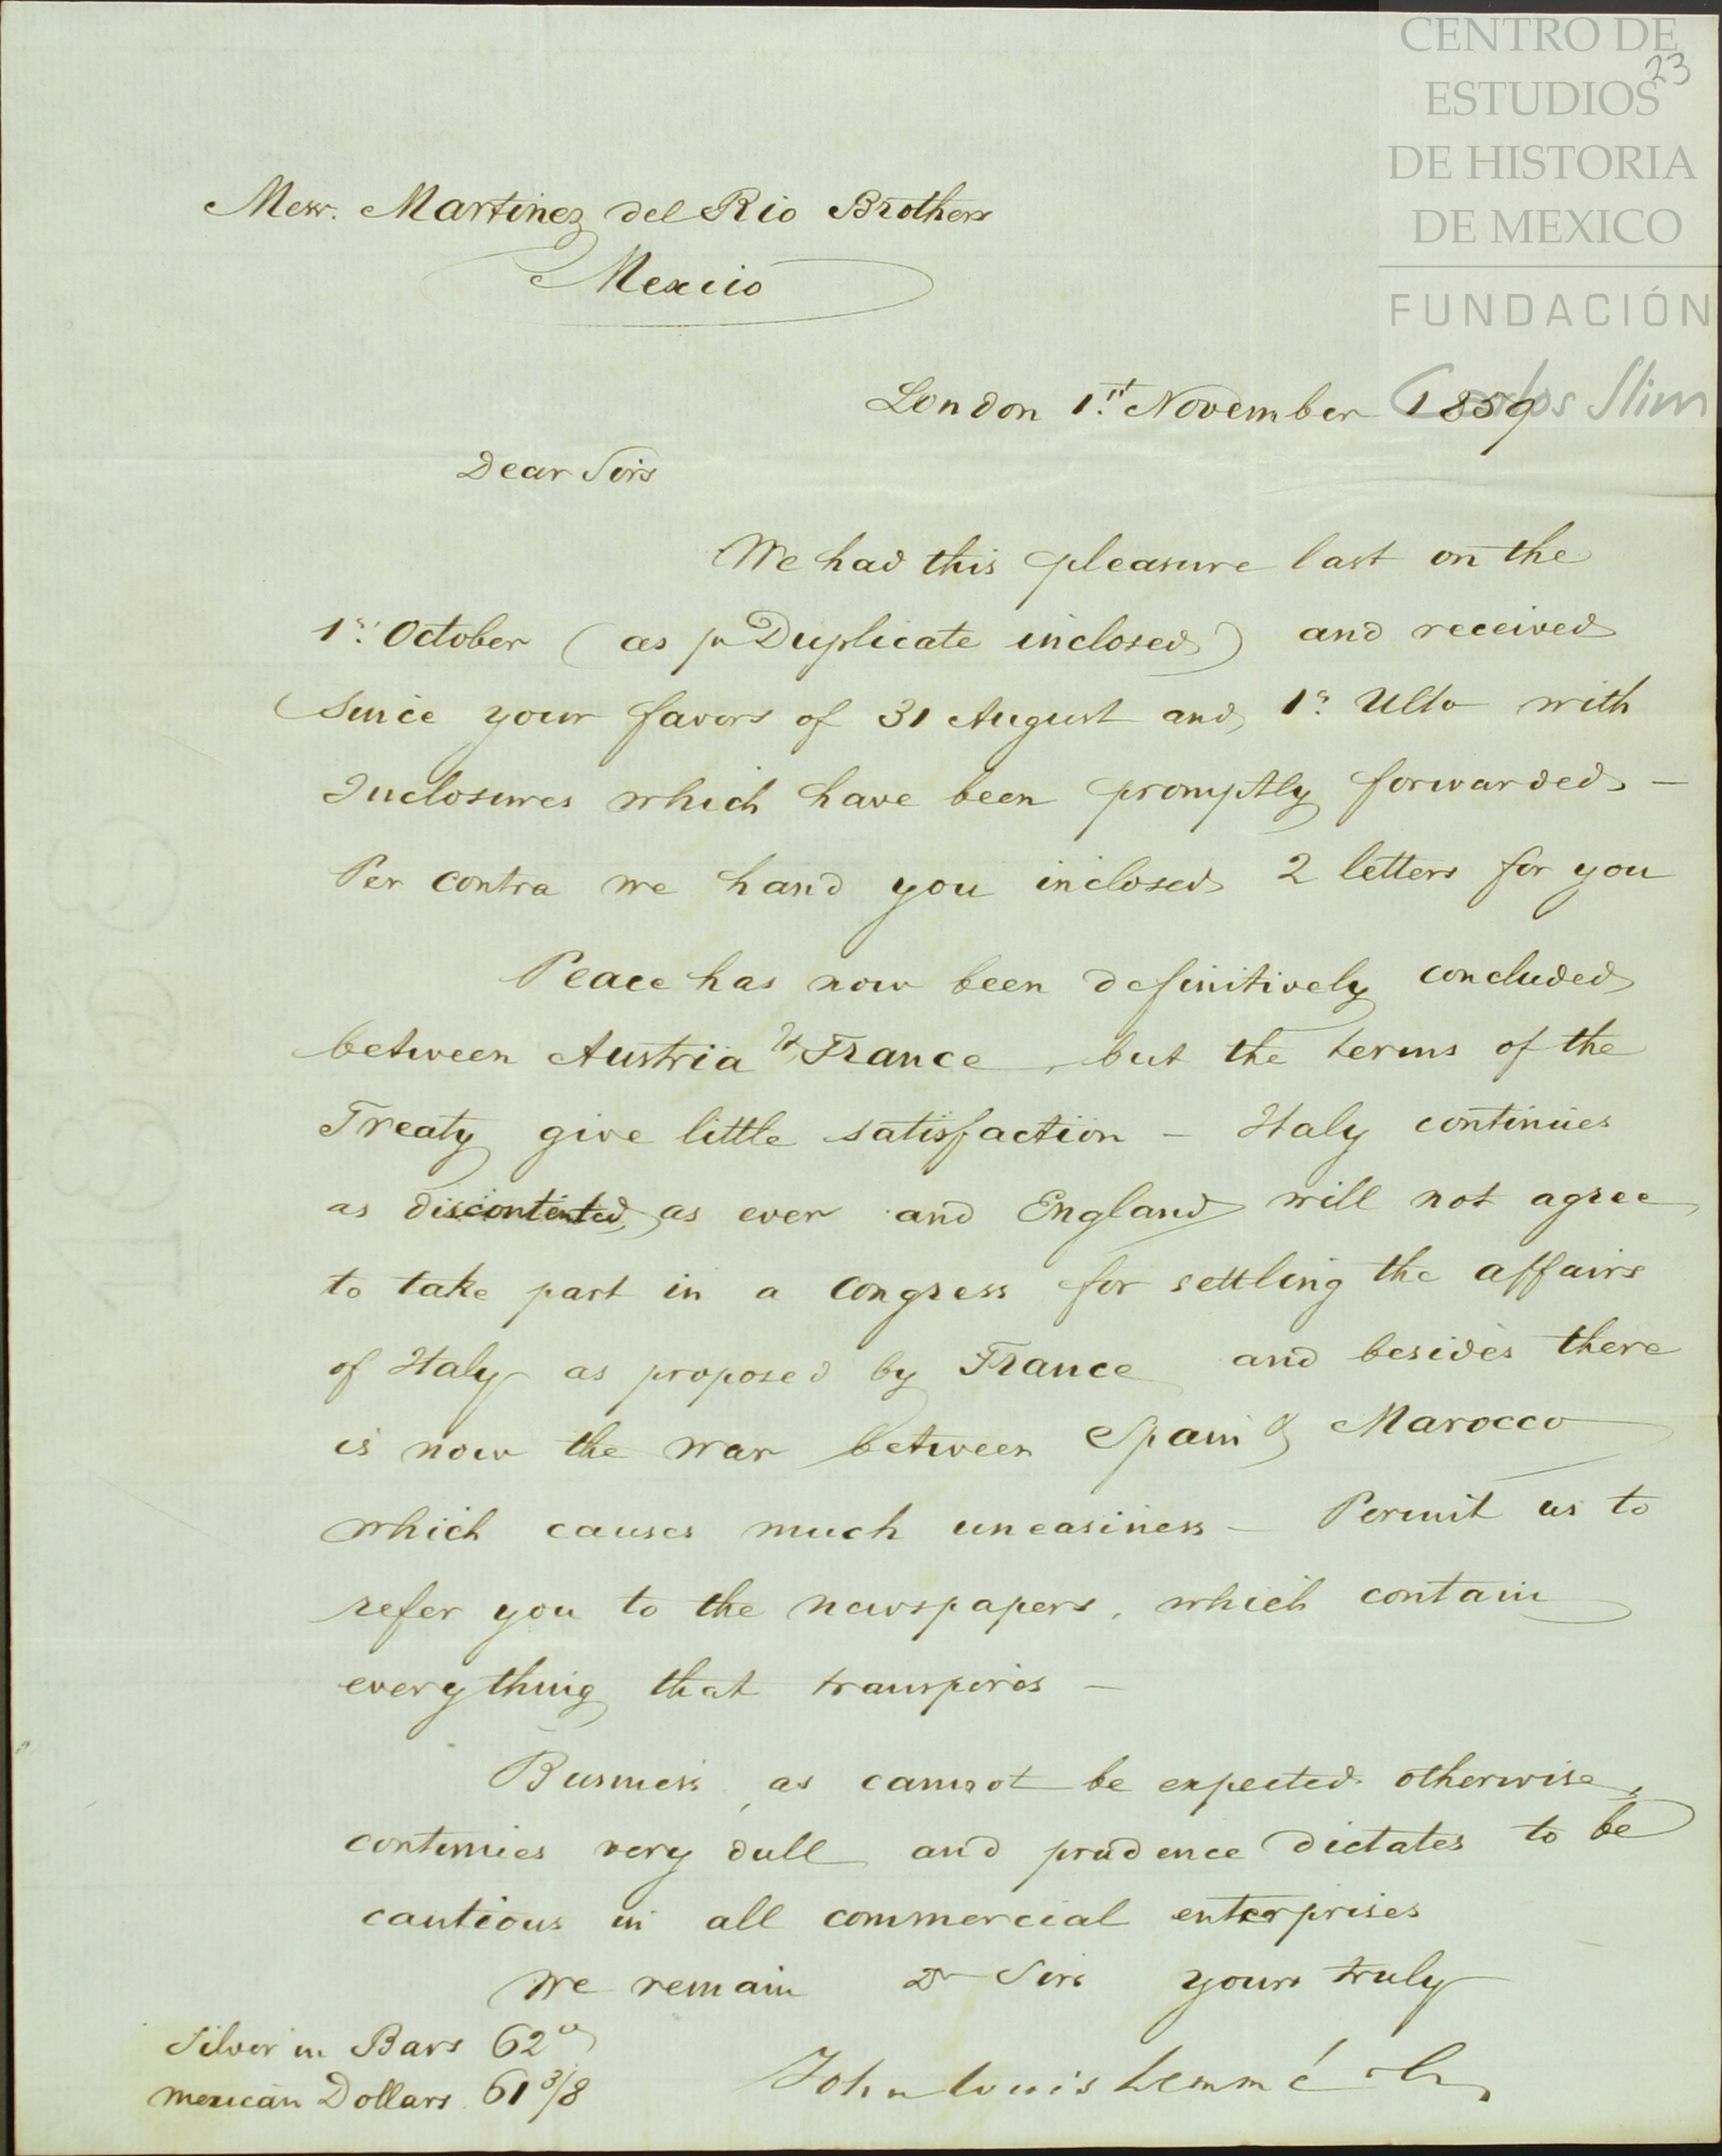 CENTRO DE
ESTUDIOS
DE HISTORIA
DE MEXICO
FUNDACIÓN
Carlos Slim
23
Messr. Martinez del Rio Brothers
Mexico
London 1st November 1859
Dear Sirs
We had this pleasure last on the
1st October (as pr Duplicate inclosed) and received
since your favors of 31 August and 1st Ulto with
Inclosures which have been promptly forwarded –
Per contra we hand you inclosed 2 letters for you
Peace has now been definitively concluded
between Austria & France, but the terms of the
Treaty give little satisfaction – Italy continues
as discontented as ever and England will not agree
to take part in a Congress for settling the affairs
of Italy as proposed by France and besides there
is now the war between Spain & Marocco
which causes much uneasiness – Permit us to
refer you to the newspapers, which contain
everything that transpires –
Business, as cannot be expected otherwise,
continues very dull and prudence dictates to be
cautious in all commercial enterprises
We remain Dr Sirs yours truly
John Louis Lemmé & Co
Silver in Bars 62
Mexican Dollars 61 3/8